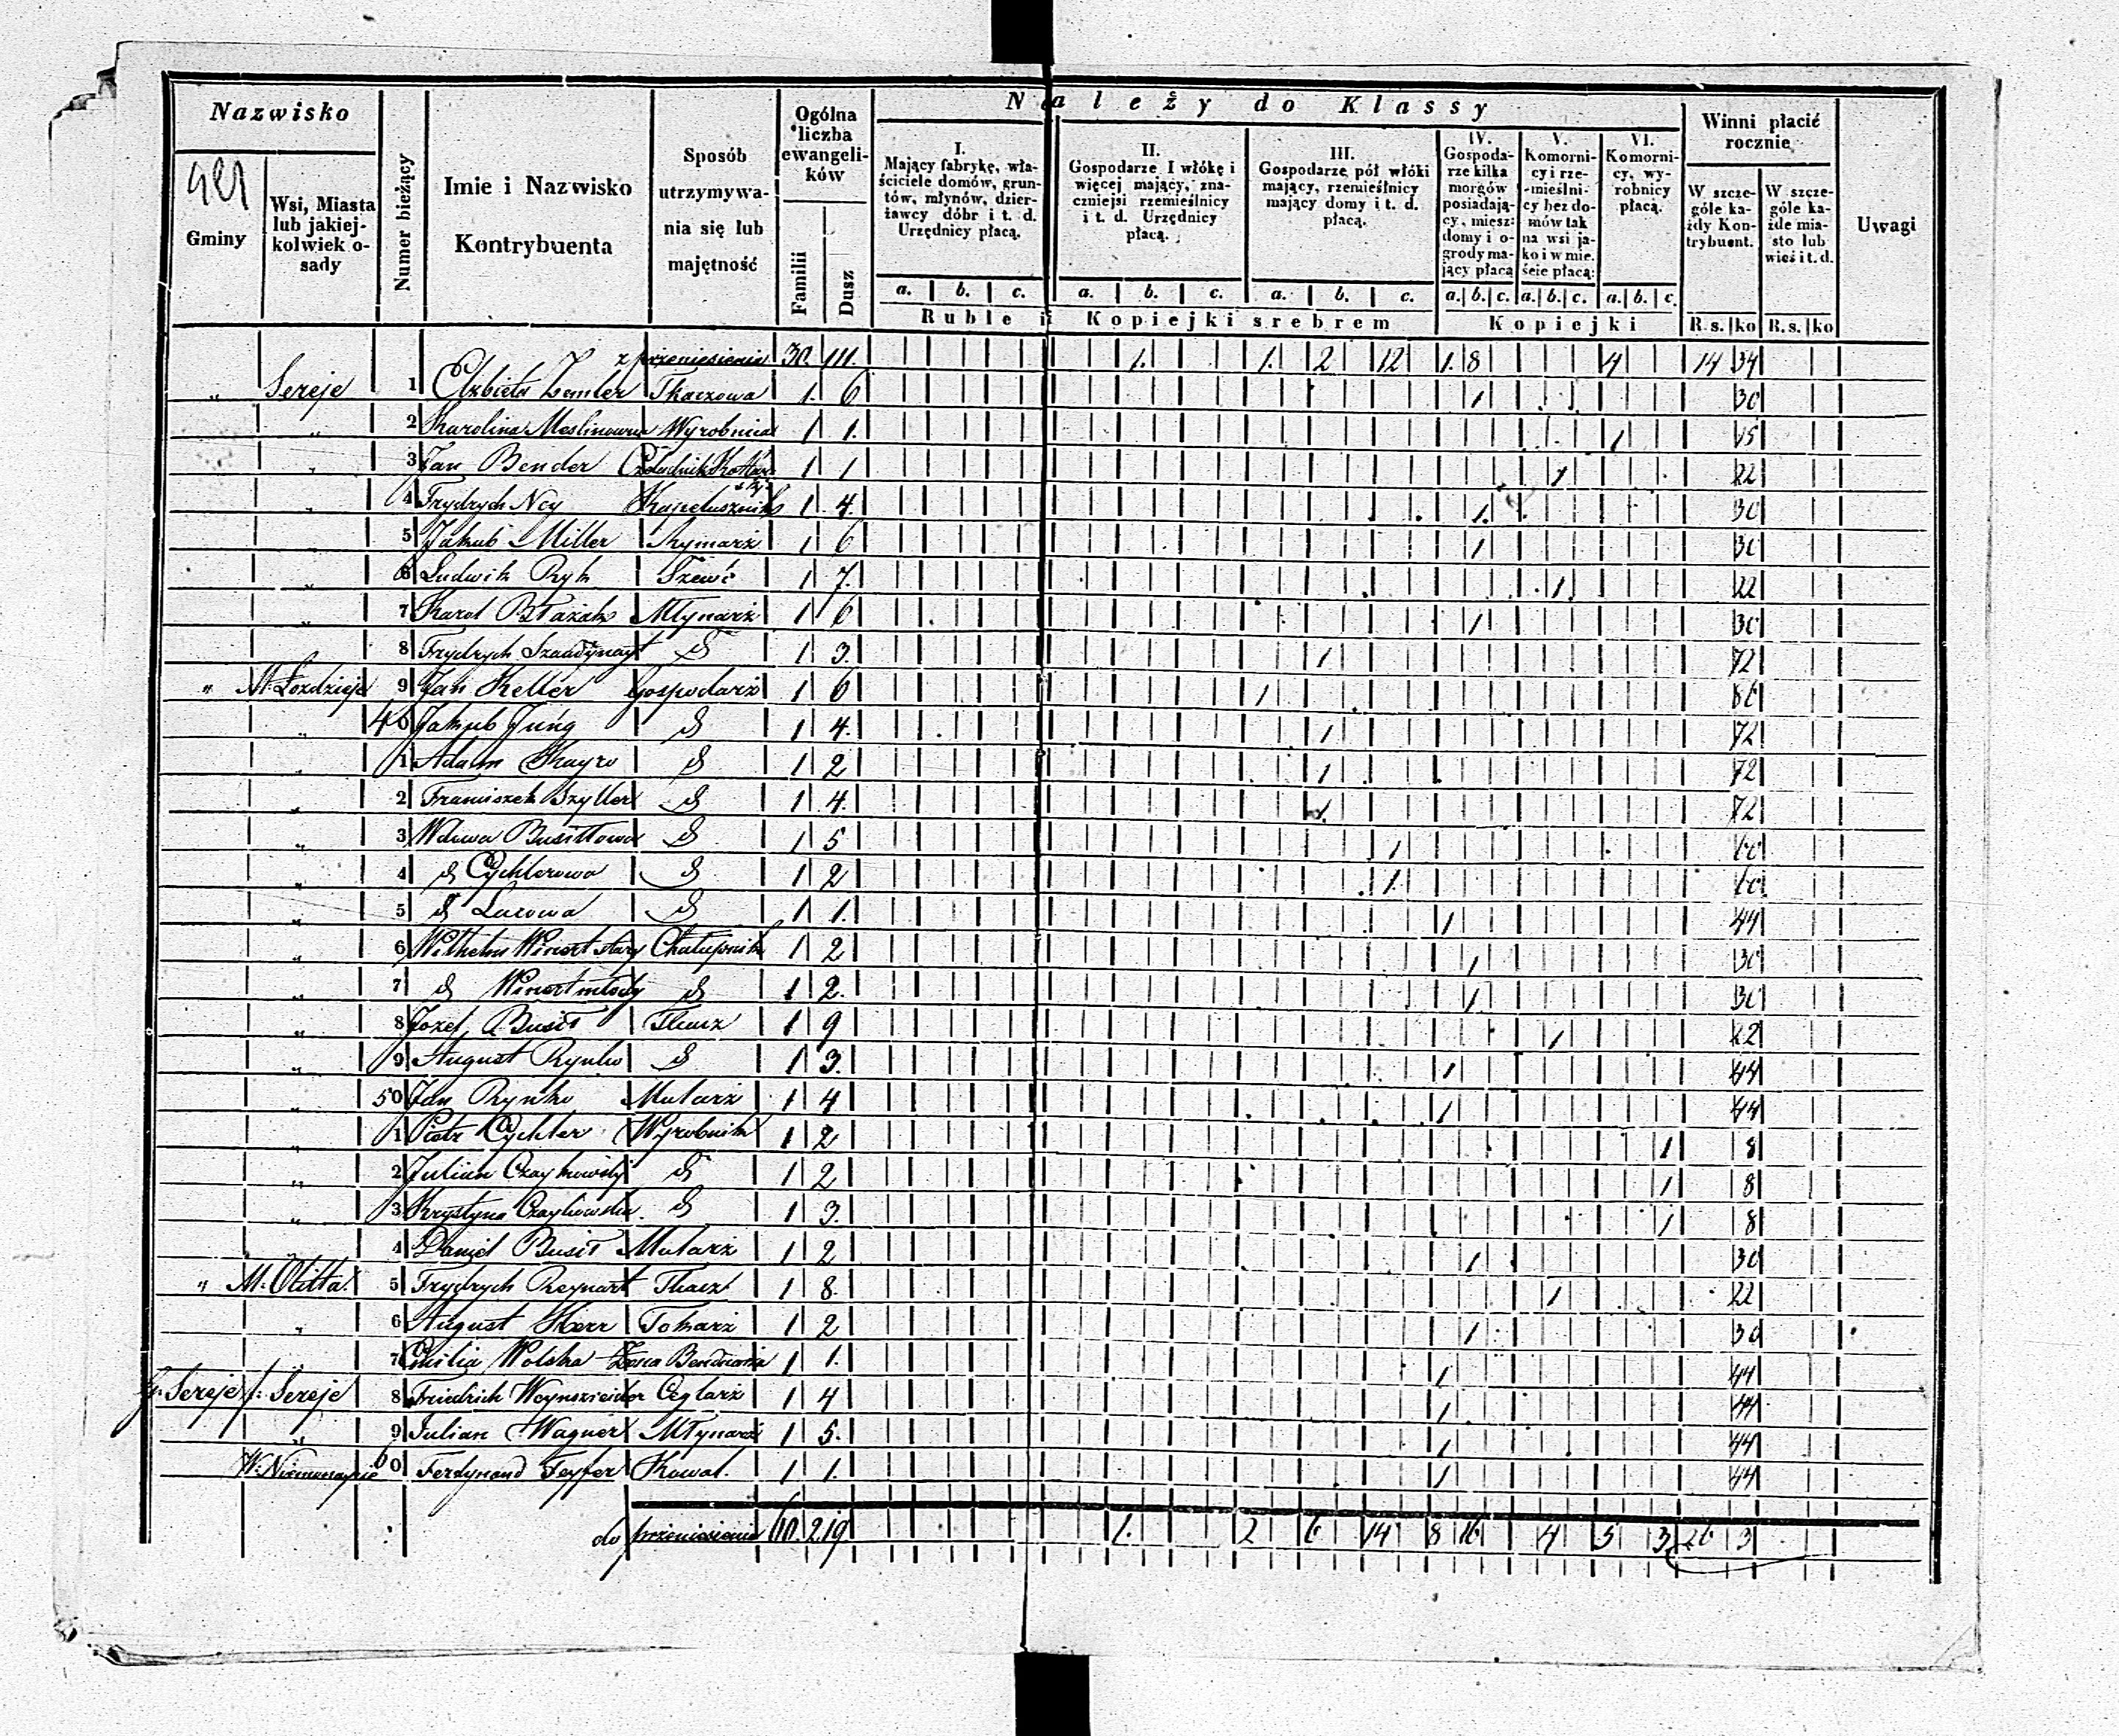 Nazwisko
Należy do Klassy
Gminy
Wsi, Miasta lub jakiejkolwiek osady
Numer bieżący
Imie i Nazwisko Kontrybuenta
Sposób utrzymywania się lub majętność
Ogólna liczba ewangelików
Familii
Dusz
I. Mający fabrykę, właściciele domów, gruntów, młynów, dzierżawcy dóbr i t. d. Urzędnicy płacą.
II. Gospodarze I włókę i więcej mający, znaczniejsi rzemieślnicy i t. d. Urzędnicy płacą.
III. Gospodarze pół włóki mający, rzemieślnicy mający domy i t. d. płacą.
IV. Gospodarze kilka morgów posiadający, miesz: domy i ogrody mający płacą
V. Komornicy i rzemieślnicy bez domów tak na wsi jako i w mieście płacą:
VI. Komornicy, wyrobnicy płacą.
Winni płacić rocznie
W szczególe każdy Kontrybuent.
W szczególe każde miasto lub wieś i t. d.
Uwagi
a. b. c. a. b. c. a. b. c. a. b. c. a. b. c. a. b. c.
Ruble i Kopiejki srebrem
Kopiejki
R.s. ko R.s. ko
z przeniesienia 30. 111. 1. 1. 2 12 1. 8 4 14 34
" Sereje 1 Elżbieta Zemler Tkaczowa 1. 6 1 30
" 2 Karolina Wyrobnica 1 1. 1 15
" 3 Jan Bender Czeladnik 1 1 1 22
" 4 Frydrych Ney Kapelusznik 1 4. 1. 30
" 5 Jakub Miller Rymarz 1 6 1 30
" 6 Ludwik Ryk Szewc 1 7. 1. 22
" 7 Karol Błażak Młynarz 1 6 1 30
8 Frydrych d 1 3. 1 72
" M. Łoździeje 9 Jan Keller Gospodarz 1 6 1 86
" 40 Jakub Jung d 1 4. 1 72
" 1 Adam Kayro d 1 2 1 72
" 2 Franciszek Szyller d 1 4. 1 72
" 3 Wdowa d 1 5 1 60
" 4 d Cychlerowa d 1 2 1. 60
" 5 d d 1 1. 1 44
" 6 Wilhelm Winert stary Chałupnik 1 2 1 30
" 7 d Winert młody d 1 2. 1 30
" 8 Józef Busit Tkacz 1 9 1 22
" 9 August Rynko d 1 3. 1 44
" 50 Jan Rynko Mularz 1 4 1 44
" 1 Piotr Cychler Wyrobnik 1 2 1 8
" 2 Julian Czaykowski d 1 2 1 8
" 3 Krystyna Czaykowska d 1 3. 1 8
4 Daniel Busit Mularz 1 2 1 30
" M. Olitta. 5 Frydrych Reynart Tkacz 1 8. 1 22
" 6 August Herr Tokarz 1 2 1 30
7 Emilia Wolska Żona Bednarza 1 1. 1 44
G. Sereje f: Sereje 8 Friedrich Woynszneider Ceglarz 1 4 1 44
" 9 Julian Wagner Młynarz 1 5. 1 44
60 Ferdynand Feyfer Kowal. 1 1. 1 44
do przeniesienia 60. 219. 1. 2 6 14 8 16 4 5 3 26 3